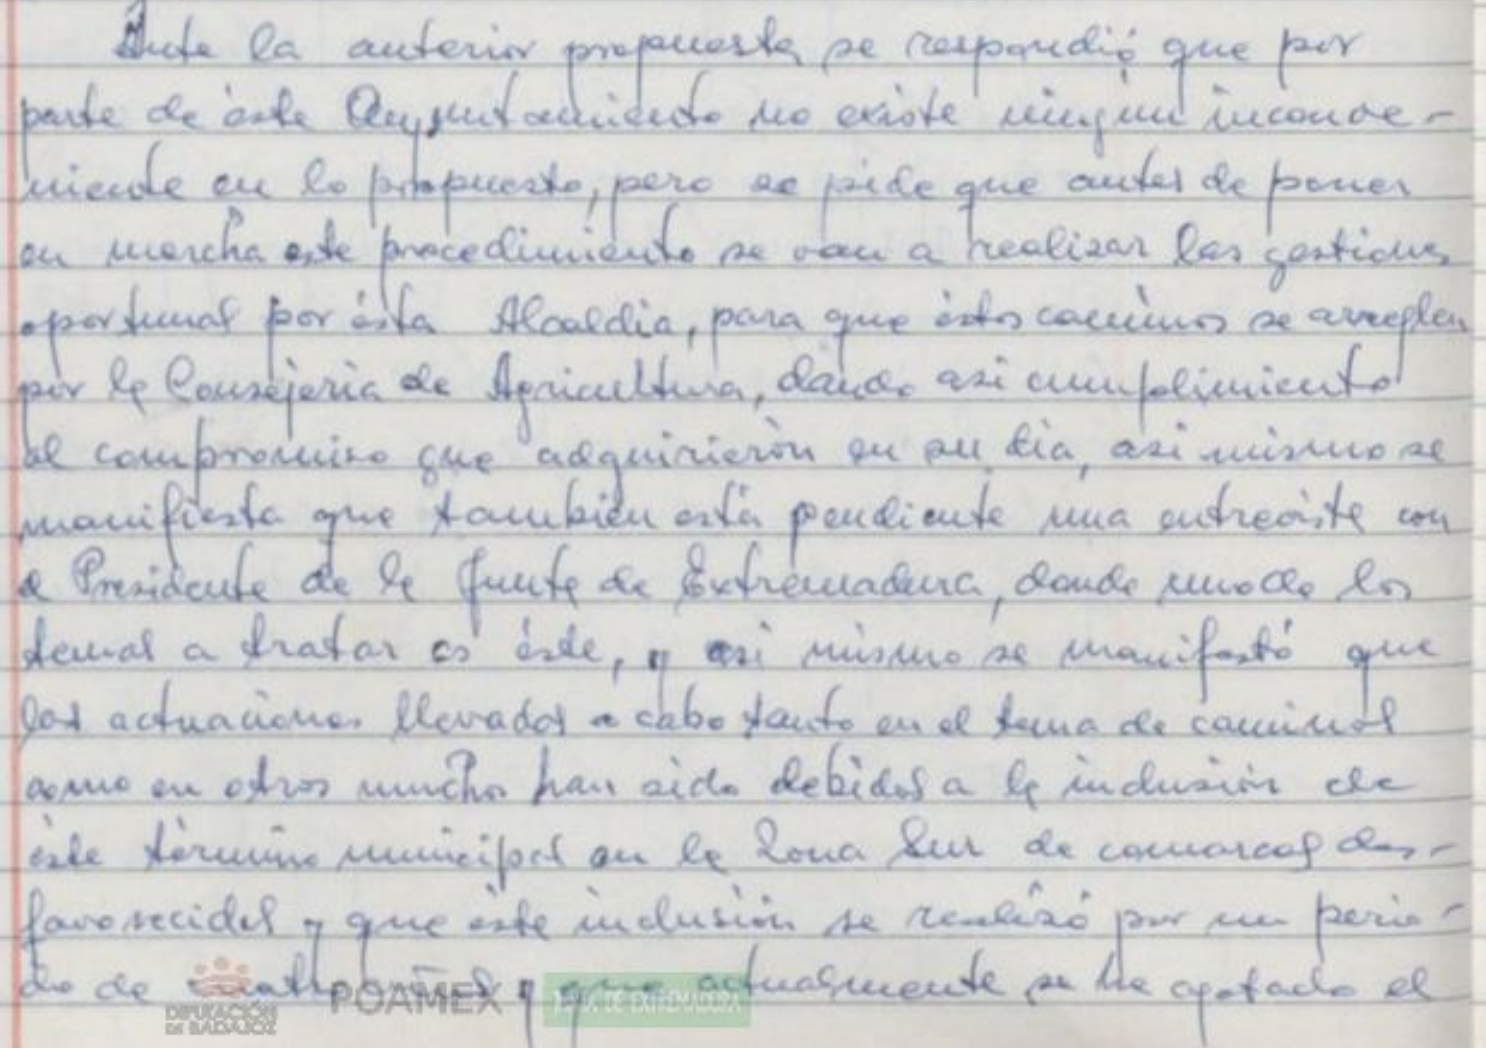 Ante la anterior propuesta, se respondió que por
parte de éste Ayuntamiento no existe ningún inconve-
niente en lo propuesto, pero se pide que antes de poner
en marcha este procedimiento se van a realizar las gestiones
oportunas por ésta Alcaldia, para que éstos caminos se arreglen
por la Consejeria de Agricultura, dando asi cumplimiento
al compromiso que adquirierón en su dia, asi mismo se
manifiesta que también está pendiente una entrevista con
el Presidente de la Junta de Extremadura, donde uno de los
temas a tratar es éste, y asi mismo se manifestó que
las actuaciones llevadas a cabo tanto en el tema de caminos
como en otros muchos han sido debidas a la inclusión de
éste término municipal en la Zona Sur de comarcas des-
favorecidas y que éste inclusión se realizó por un perio-
do de y que actualmente se ha agotado el
DIPUTACIÓN
DE BADAJOZ
POAMEX
JUNTA DE EXTREMADURA